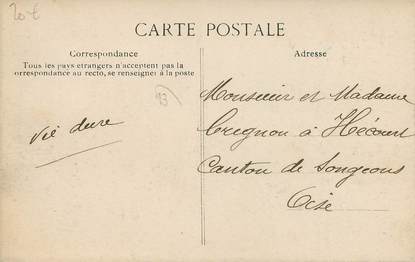 20 €
CARTE POSTALE
Correspondance
Tous les pays étrangers n'acceptent pas la
correspondance au recto, se renseigner à la poste
Adresse
93
Vié dure
Monsieur et Madame
Cregnon à Hécourt
Canton de Songeons
Oise